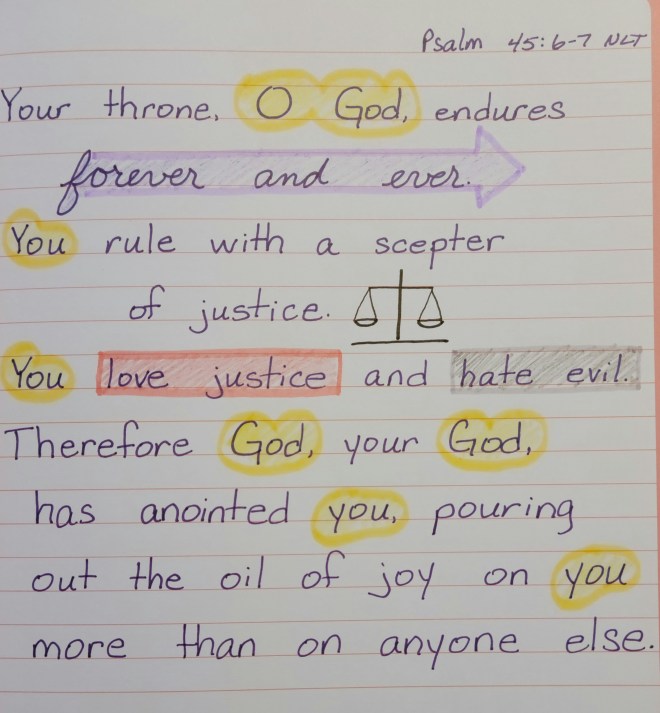 Psalm 45:6-7 NLT
Your throne, O God, endures
forever and ever.
You rule with a scepter
of justice.
You love justice and hate evil.
Therefore God, your God,
has anointed you, pouring
out the oil of joy on you
more than on anyone else.